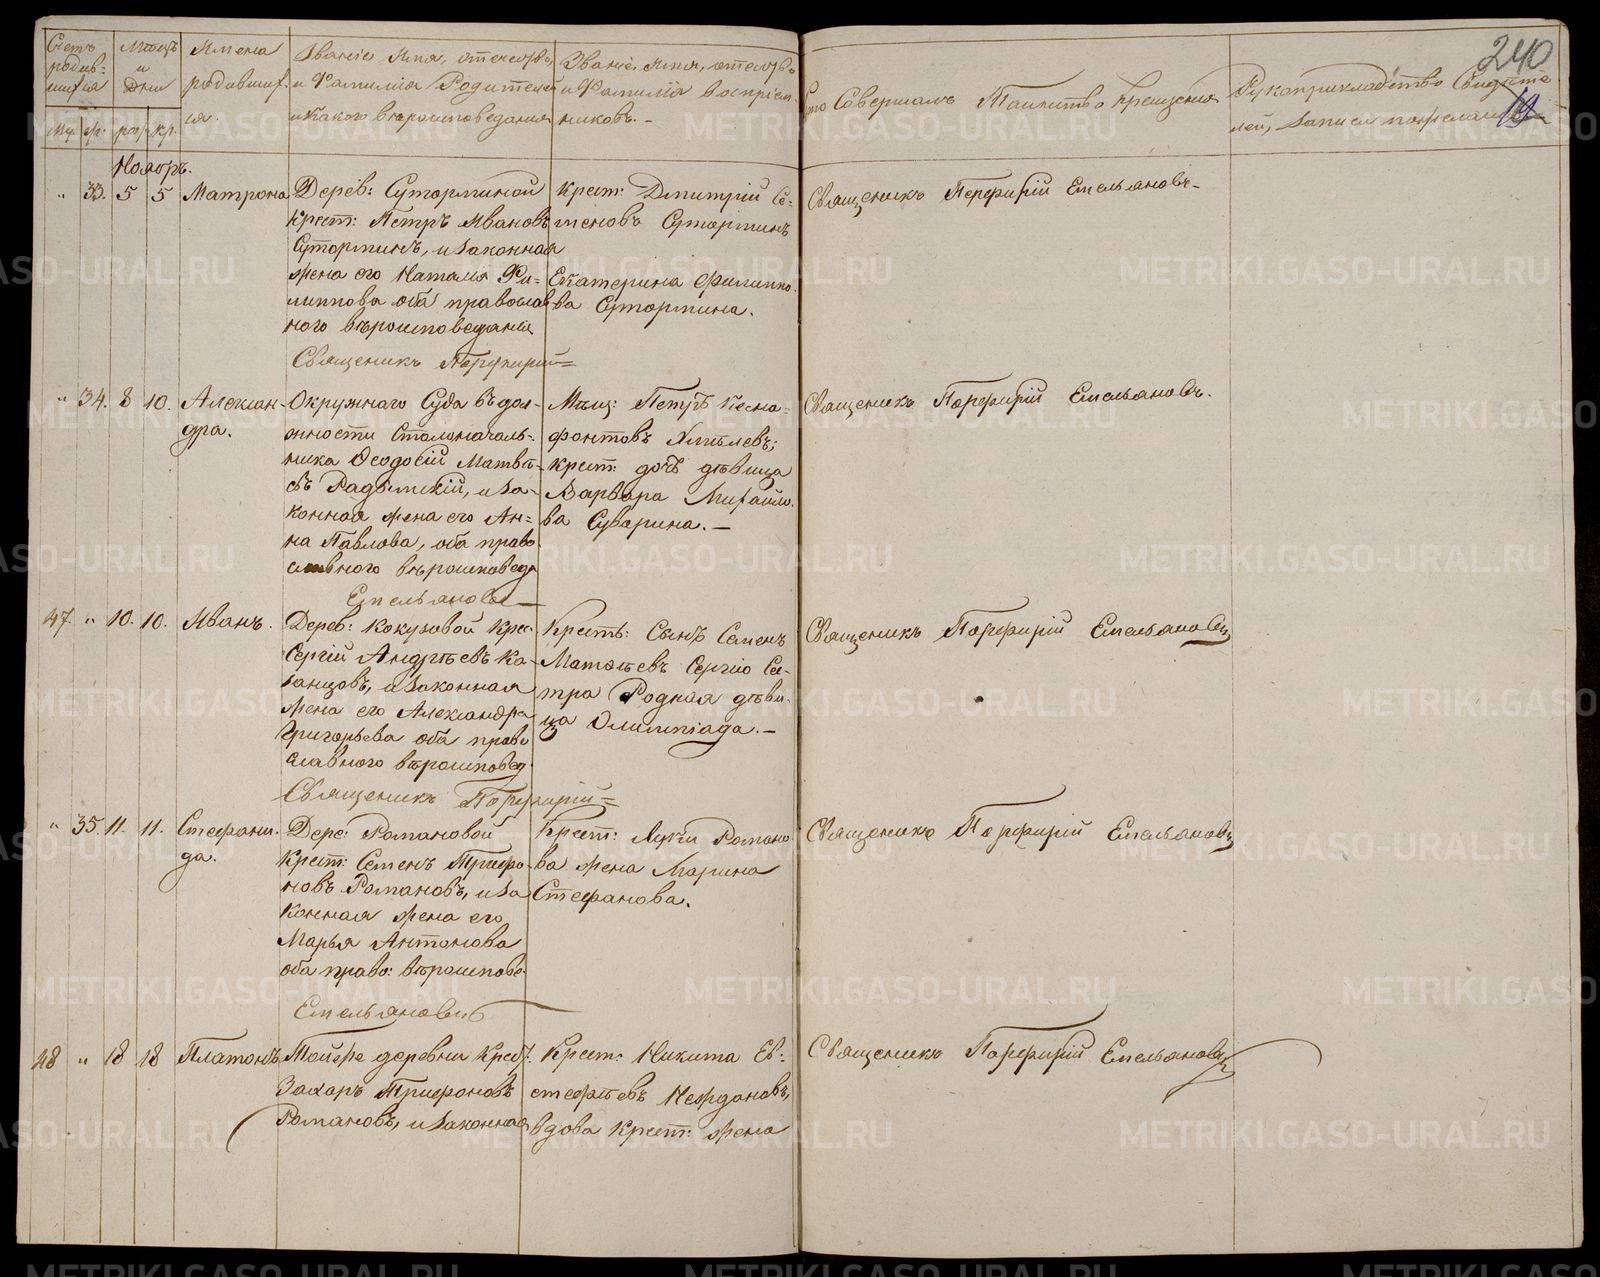 240
19
Счетъ родив-шихся
Мѣсяцъ и Дни
Имена родивших-ся.
Званіе Имя, отечество, и Фамилія Родителей и какого вѣроисповѣданія
Званіе, Имя, отечество и Фамилія воспріем-никовъ. -
Кто Совершалъ Таинство Крещенія
Рукоприкладство Свидѣте-лей, записи по желан
Му. Ж. ро, кр.
Ноябрь.
" 33. 5 5 Матрона
Дерев: Суторминой
Крест: Петръ Ивановъ
Суторминъ, и законная
жена его Наталья Фи-
липпова оба православ
ного вѣроисповеданія
Крест: Дмитрій Се-
меновъ Суторминъ
Екатерина Филиппо-
ва Сутормина.
Священикъ Порфирій Емельяновъ-
Священикъ Порфирій=
" 34. 8 10. Алексан-
дра.
Окружнаго Суда въ дол-
жности Столоначаль-
ника Ѳеодосій Матвѣ-
евъ Радомскій, и за-
конная жена его Ан-
на Павлова, оба право
славного вѣроисповеда
Мѣщ: Петръ Ксено-
фонтовъ Хмѣлевъ;
крест: дочь дѣвица
Варвара Михайло-
ва Суварина. -
Священикъ Порфирій Емельяновъ.
Емельяновъ
47. " 10. 10. Иванъ.
Дерев: Кокузовой Крес:
Сергій Андрѣевъ Ка-
занцовъ, и законная
жена его Александра
Григорьева оба право
славного вѣроисповед.
Крест: Сынъ Семенъ
Матвѣевъ Сергію Се-
тра Родная дѣви-
ца Олимпіада. -
Священикъ Порфирій Емельяновъ
Священикъ Порфирій=
" 35. 11. 11. Стефани-
да.
Дере: Романовой
Крест: Семенъ Трифо-
новъ Романовъ, и за
конная жена его
Марья Антонова
оба право: вѣроиспове
Крест: Луки Романо
ва жена Марина
Стефанова.
Священикъ Порфирій Емельяновъ
Емельяновъ
48 " 18 18 Платонъ
Тойже деревни Крес:
Захаръ Трифоновъ
Романовъ, и законная
Крест: Никита Ев-
стефѣевъ Неждановъ,
вдова Крест: жена
Священикъ Порфирій Емельяновъ